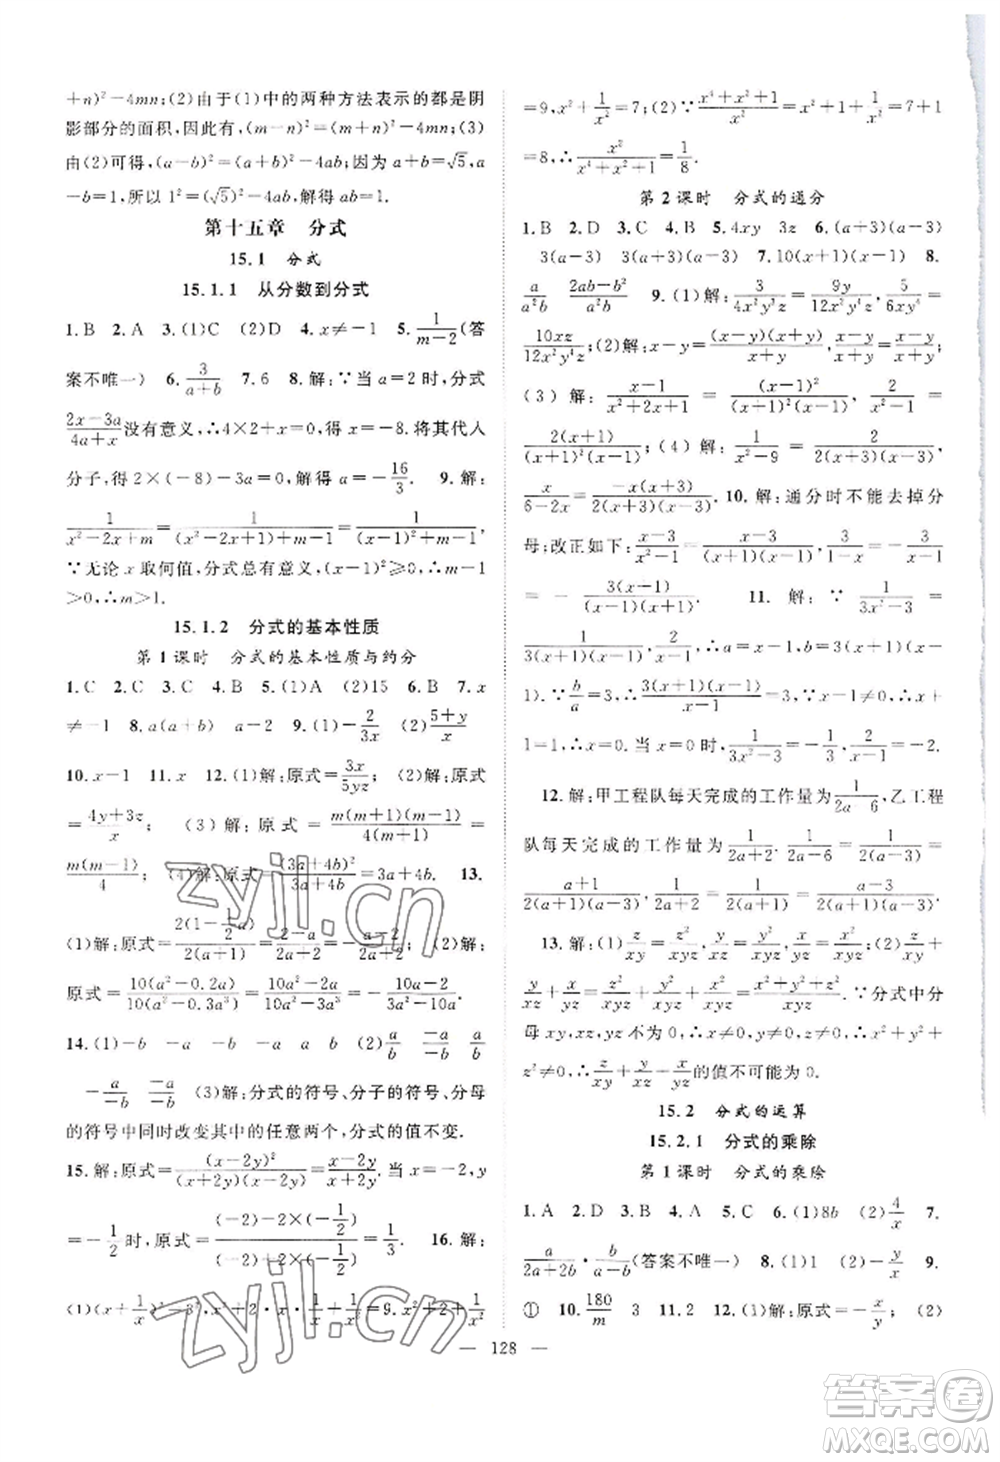 +n)²-4mn;(2)由于(1)中的两种方法表示的都是阴
影部分的面积,因此有,(m-n)²=(m+n)²-4mn;(3)
由(2)可得,(a-b)²=(a+b)²-4ab;因为a+b=√5,a
-b=1,所以1²=(√5)²-4ab,解得ab=1.
第十五章 分式
15.1 分式
15.1.1 从分数到分式
1.B 2.A 3.(1)C (2)D 4.x≠-1 5.1/(m-2)(答
案不唯一) 6.3/(a+b) 7.6 8.解:∵当a=2时,分式
(2x-3a)/(4a+x)没有意义,∴4×2+x=0,∴x=-8.将其代入
分子,得2×(-8)-3a=0,解得a=-16/3. 9.解:
1/(x²-2x+m)=1/((x²-2x+1)+m-1)=1/((x-1)²+m-1),
∵无论x取何值,分式总有意义,(x-1)²≥0,∴m-1
>0,∴m>1.
15.1.2 分式的基本性质
第1课时 分式的基本性质与约分
1.C 2.C 3.A 4.A 5.(1)A (2)15 6.B 7.x
≠-1 8.a(a+b) a-2 9.(1)-2/(3x) (2)(5+y)/x
10.x-1 11.x 12.(1)解:原式=3x/(5yz) (2)解:原式
=(4y+3z)/x; (3)解:原式=m(m+1)(m-1)/(4(m+1))=
m(m-1)/4;(4)解:原式=(3a+4b)²/(3a+4b)=3a+4b. 13.
(1)解:原式=2(1-1/2a)/=(2-a)/=-; (2)解:
原式=10(a²-0.2a)/(10(a²-0.3a³))=(10a²-2a)/(10a²-3a³)=-(10a-2)/(3a²-10a).
14.(1)-b -a -a a (2)a/b (-a)/(-b)
-a/(-b) -(-a)/b (3)解:分式的符号、分子的符号、分母
的符号中同时改变其中的任意两个,分式的值不变.
15.解:原式=(x-2y)²/((x+2y)(x-2y))=(x-2y)/(x+2y).当x=-2,y
=-1/2时,原式=((-2)-2×(-1/2))/((-2)+2×(-1/2))=1/3. 16.解:
(1)(x+1/x)²=3²,x²+2·x·1/x+1/x²=9.x²+2+1/x²
=9,x²+1/x²=7;(2)∵(x⁴+x²+1)/x²=x²+1+1/x²=7+1
=8,∴x²/(x⁴+x²+1)=1/8.
第2课时 分式的通分
1.B 2.D 3.C 4.B 5.4xy 3z 6.(a+3)(a-3)
3(a-3) (a+3)(a-3) 7.10(x+1)(x-1) 8.
a/(a²b) (2ab-b²)/(a²b) 9.(1)解:3/(4x²y³z)=9y/(12x²y⁴z),5/(6xy⁴)=
10xz/(12x²y⁴z);(2)解:x-y=(x-y)(x+y)/(x+y);
(3)解:(x-1)/(x²+2x+1)=(x-1)²/((x+1)²(x-1)),2/(x²-1)=
2(x+1)/((x+1)²(x-1));(4)解:1/(x²-9)=2/(2(x+3)(x-3)),
x/(6-2x)=-x(x+3)/(2(x+3)(x-3)). 10.解:通分时不能去掉分
母;改正如下:(x-3)/(x²-1)=(x-3)/((x+1)(x-1)),3/(1-x)
=-3(x+1)/((x+1)(x-1)). 11.解:∵1/(3x²-3)=
1/(3(x+1)(x-1)),∴a=x-1,b=3(x+1)(x-
1).∵b/a=3(x+1)(x-1)/(x-1)=3(x+1)=3,∴x+
1=1,∴x=0.当x=0时,1/(3x²-3)=-1/3,2/(x-1)=-2.
12.解:甲工程队每天完成的工作量为1/(2a-6),乙工程
队每天完成的工作量为1/(2a+2).1/(2a-6)=
(a+1)/(2(a+1)(a-3)),1/(2a+2)=(a-3)/(2(a+1)(a-3)).
13.解:(1)z/xy=z²/xyz,y/xz=y²/xyz,x/yz=x²/xyz;(2)z/xy+
y/xz+x/yz=z²/xyz+y²/xyz+x²/xyz=(x²+y²+z²)/xyz.∵分式中分
母xy,xz,yz不为0,∴x≠0,y≠0,z≠0,∴x²+y²+
z²≠0,∴z/xy+y/xz+x/yz的值不可能为0.
15.2 分式的运算
15.2.1 分式的乘除
第1课时 分式的乘除
1.A 2.D 3.B 4.A 5.A 6.(1)8b (2)4/x 7.
a/(2a+2b)·b/(a-b)(答案不唯一) 8.(1)1 (2)-y/x 9.
① 10.180/m 3 11.2 12.(1)解:原式=-x/y; (2)
— 128 —
zyjl.cn
答案圈
MXQE.COM